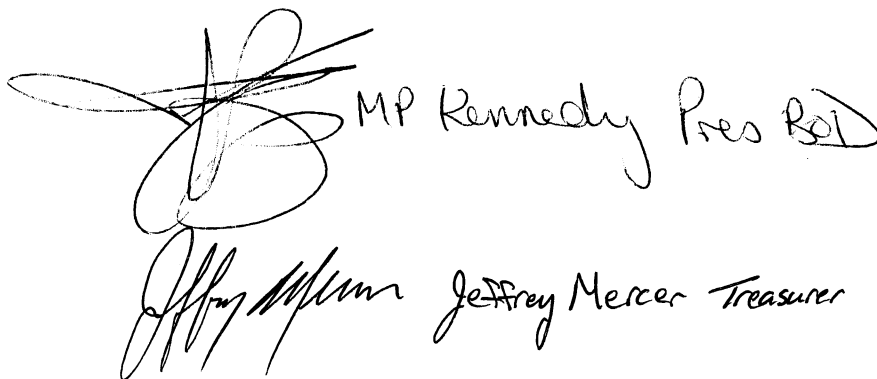 MP Kennedy Pres BoD
Jeffrey Mercer Jeffrey Mercer Treasurer